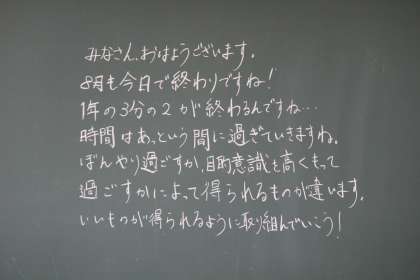 みなさん、おはようございます。
8月も今日で終わりですね！
1年の3分の2が終わるんですね…
時間はあっという間に過ぎていきますね。
ぼんやり過ごすか、目的意識を高くもって
過ごすかによって得られるものが違います。
いいものが得られるように取り組んでいこう！